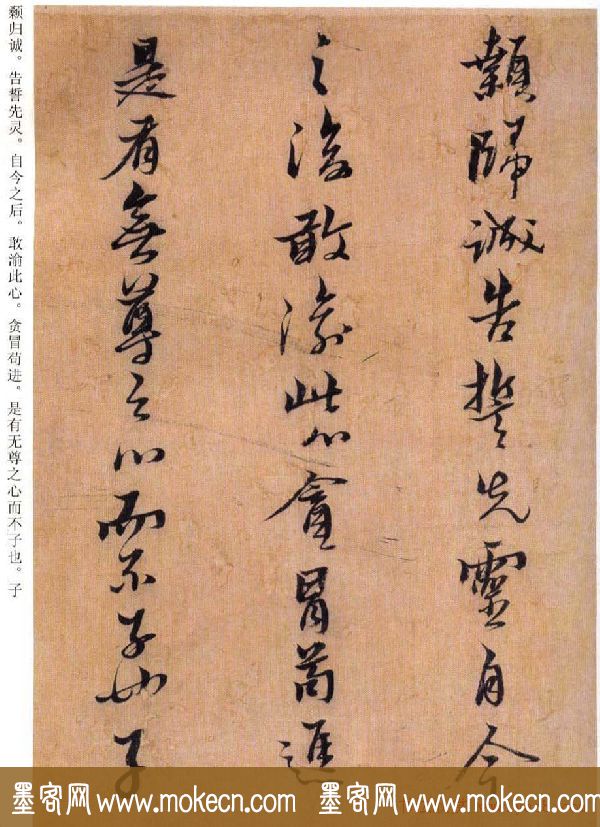 颡归诚。告誓先灵。自今之后。敢渝此心。贪冒苟进。是有无尊之心而不子也。子
顙歸誠告誓先靈自今
之後敢渝此心貪冒苟進
是有無尊之心而不子也子
墨客网 www.mokecn.com 墨客网 www.mokecn.com